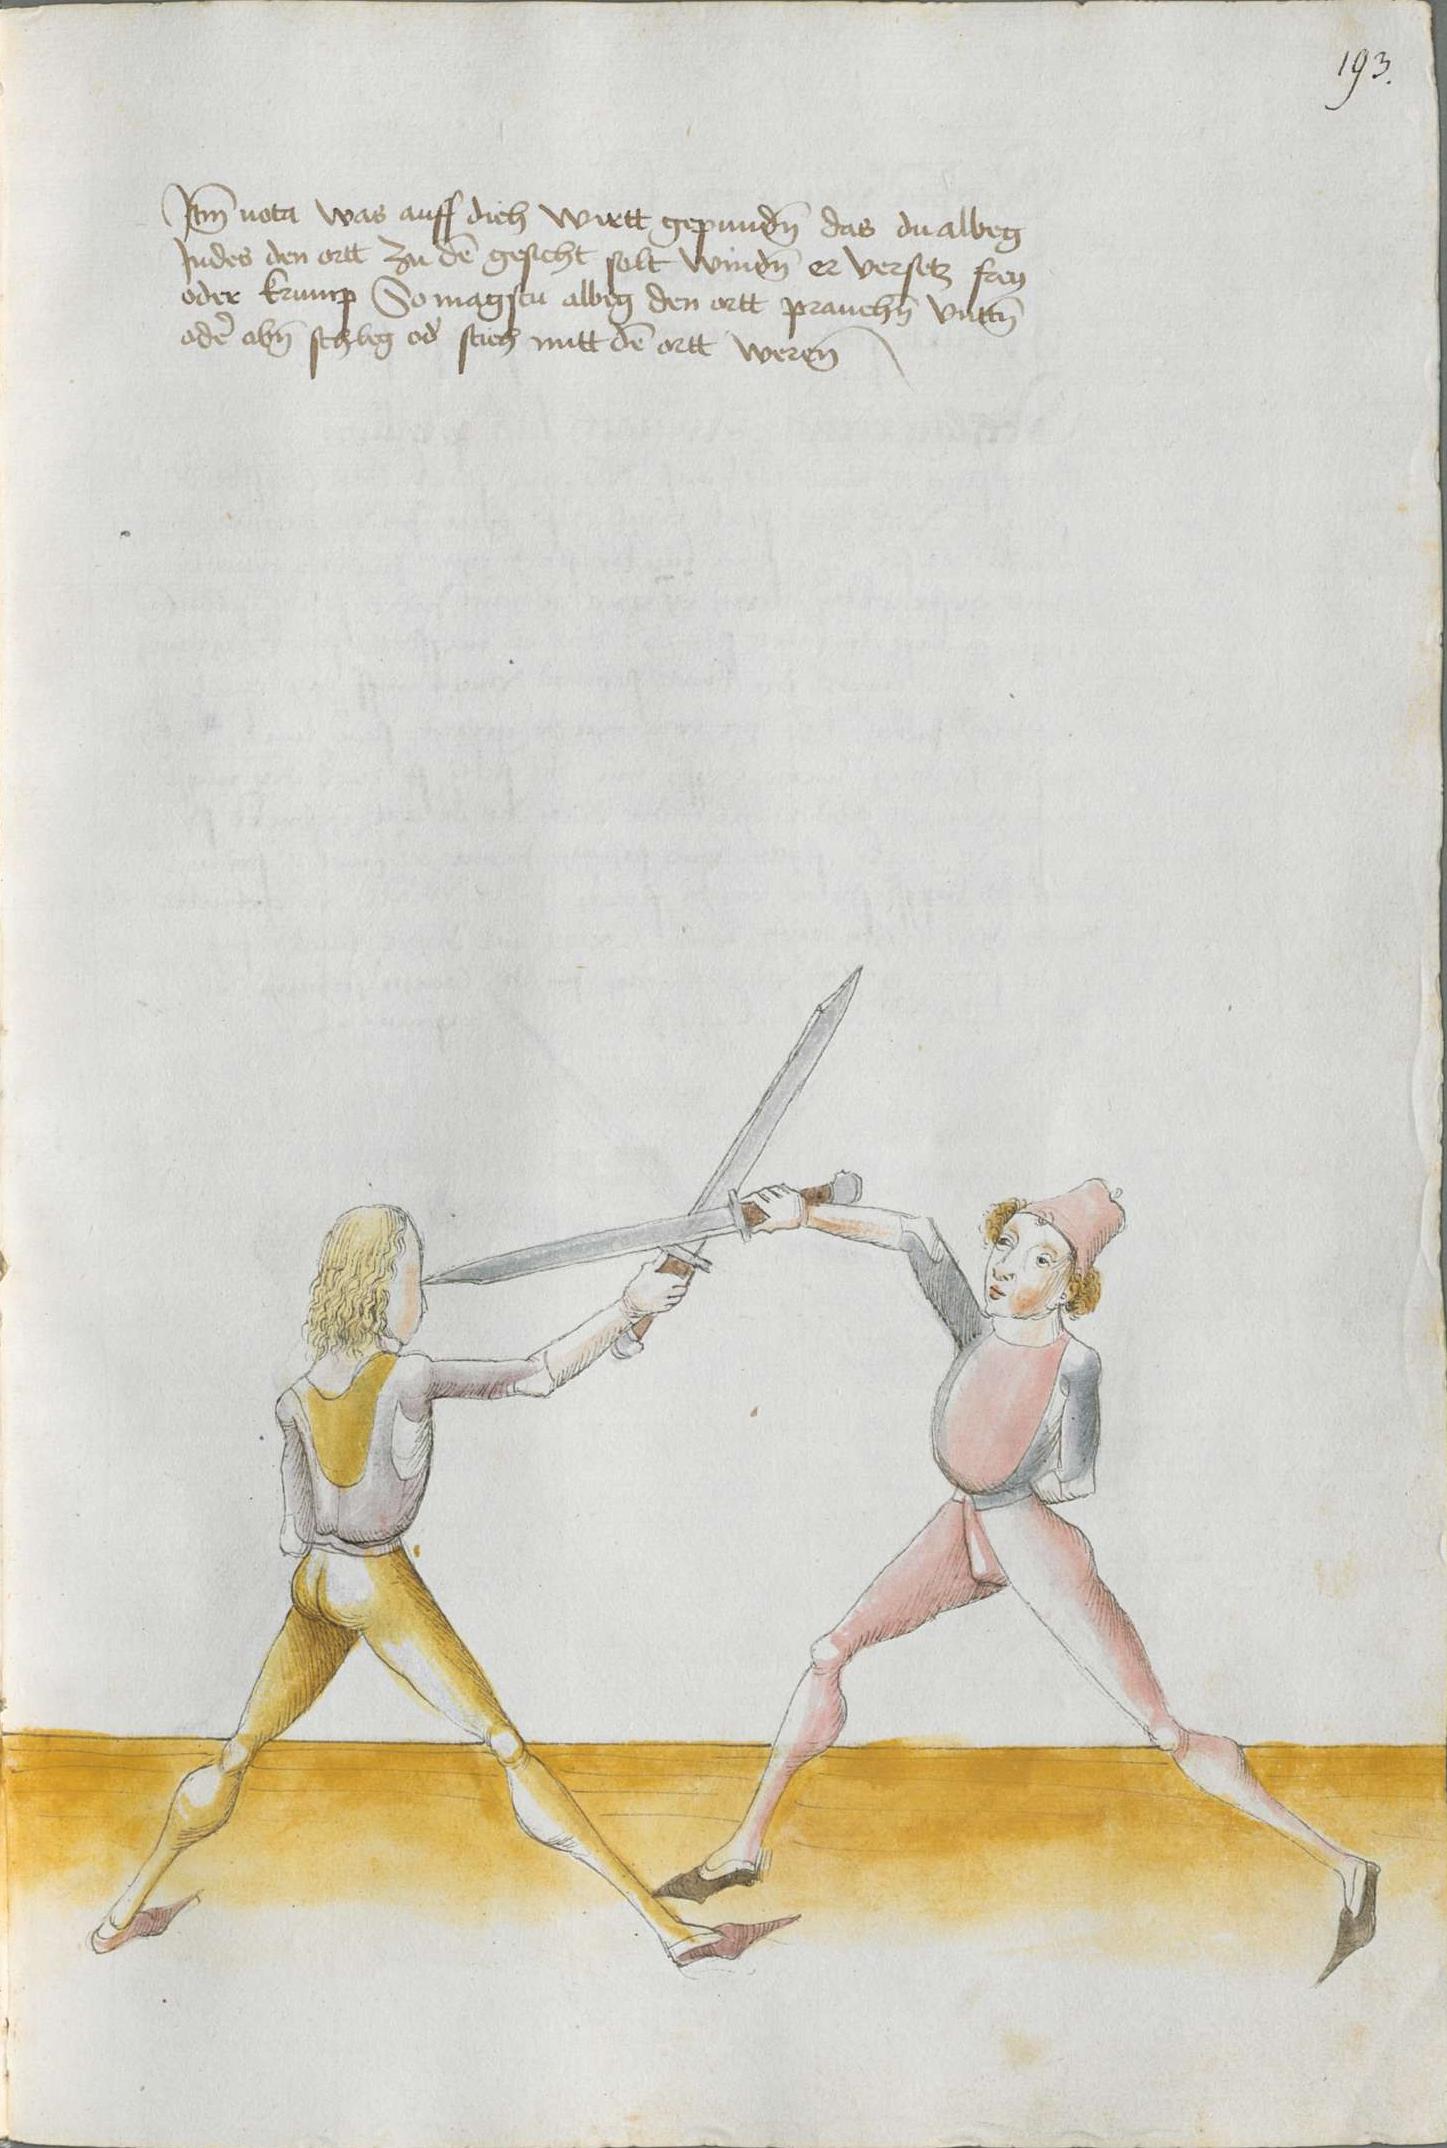 193.
Itm̄ nota was auff dich wirtt gepundn̄ das du albeg
Indes den ortt zu dē gesicht solt windn̄ er versetz frey
oder krump So magstu albeg den ortt prauchn̄ vnttn̄
odeʳ obn̄ schleg od̓ stich mitt dē ortt weren̄